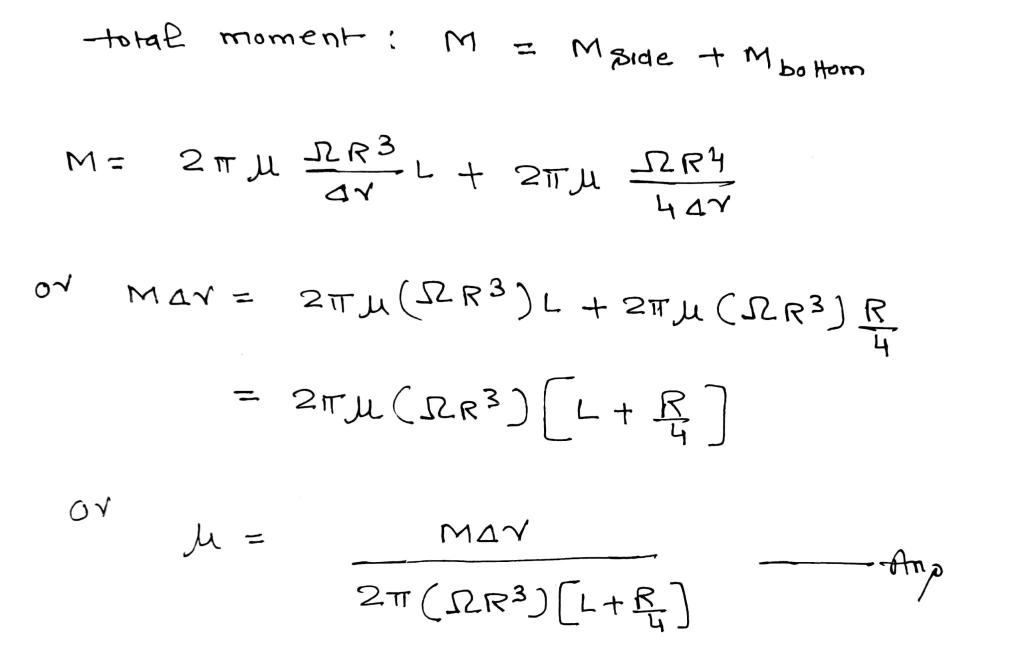 total moment : M = M side + M bottom
M = 2πμ ΩR³/Δr L + 2πμ ΩR⁴/4Δr
or MΔr = 2πμ(ΩR³)L + 2πμ(ΩR³) R/4
= 2πμ(ΩR³)[L + R/4]
or μ = MΔr / 2π(ΩR³)[L + R/4] —— Ans